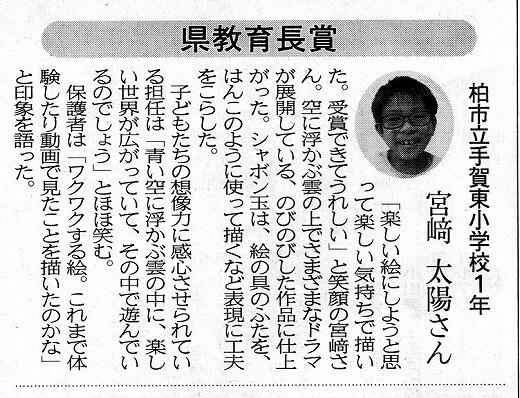 県教育長賞
柏市立手賀東小学校1年
宮﨑 太陽さん
「楽しい絵にしようと思
って楽しい気持ちで描い
た。受賞できてうれしい」と笑顔の宮﨑さ
ん。空に浮かぶ雲の上でさまざまなドラマ
が展開している、のびのびした作品に仕上
がった。シャボン玉は、絵の具のふたを、
はんこのように使って描くなど表現に工夫
をこらした。
子どもたちの想像力に感心させられてい
る担任は「青い空に浮かぶ雲の中に、楽し
い世界が広がっていて、その中で遊んでい
るのでしょう」とほほ笑む。
保護者は「ワクワクする絵。これまで体
験したり動画で見たことを描いたのかな」
と印象を語った。